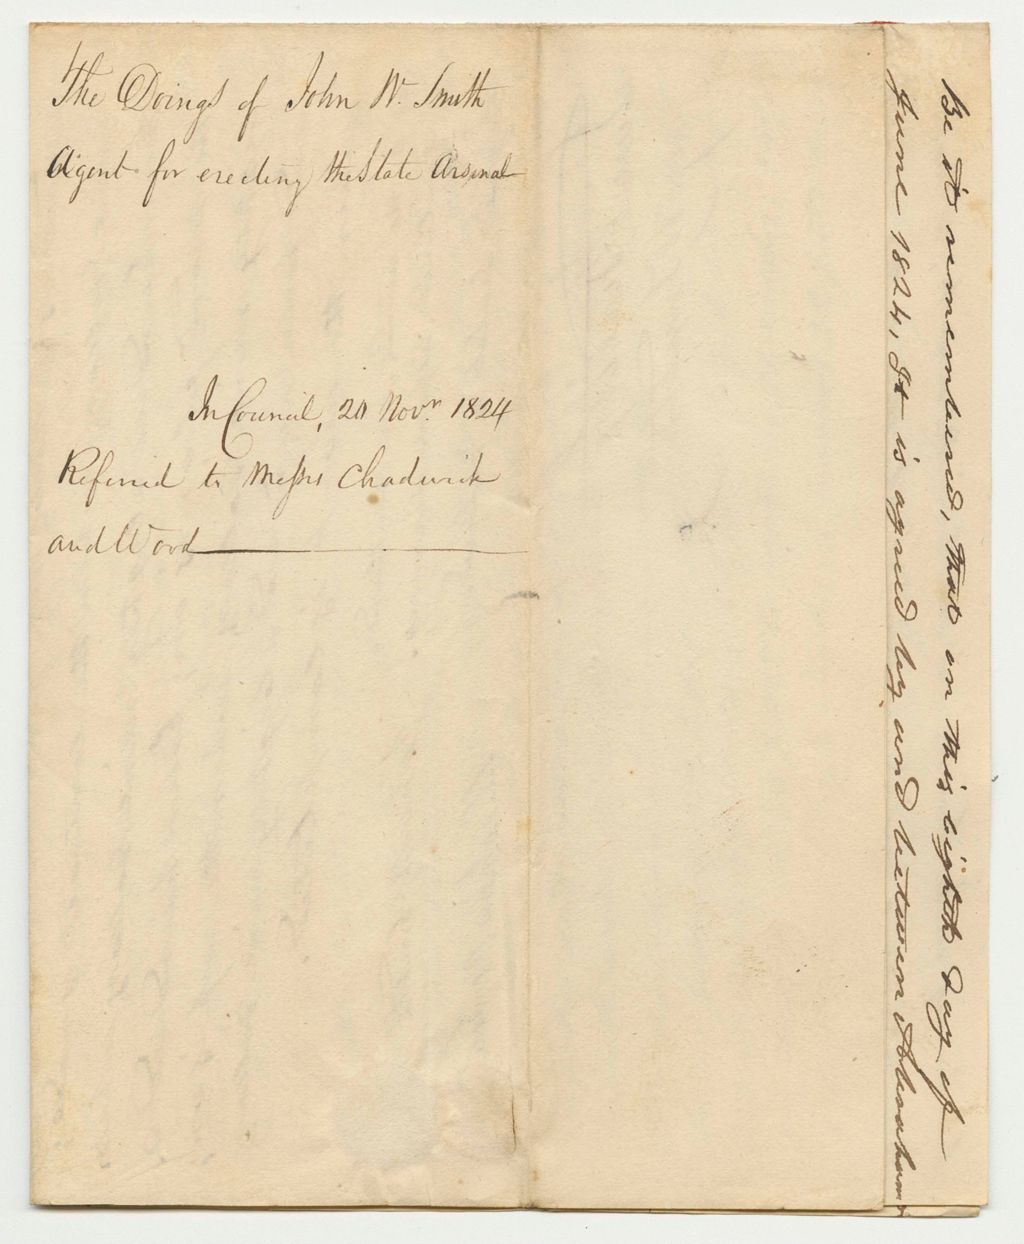 The Doings of John W. Smith
Agent for erecting the State Arsenal
In Council, 20 Novr. 1824
Referred to Messrs Chadwick
and Wood
Be it remembered, that on this eighth day of
June 1824, It is agreed by and between Abraham